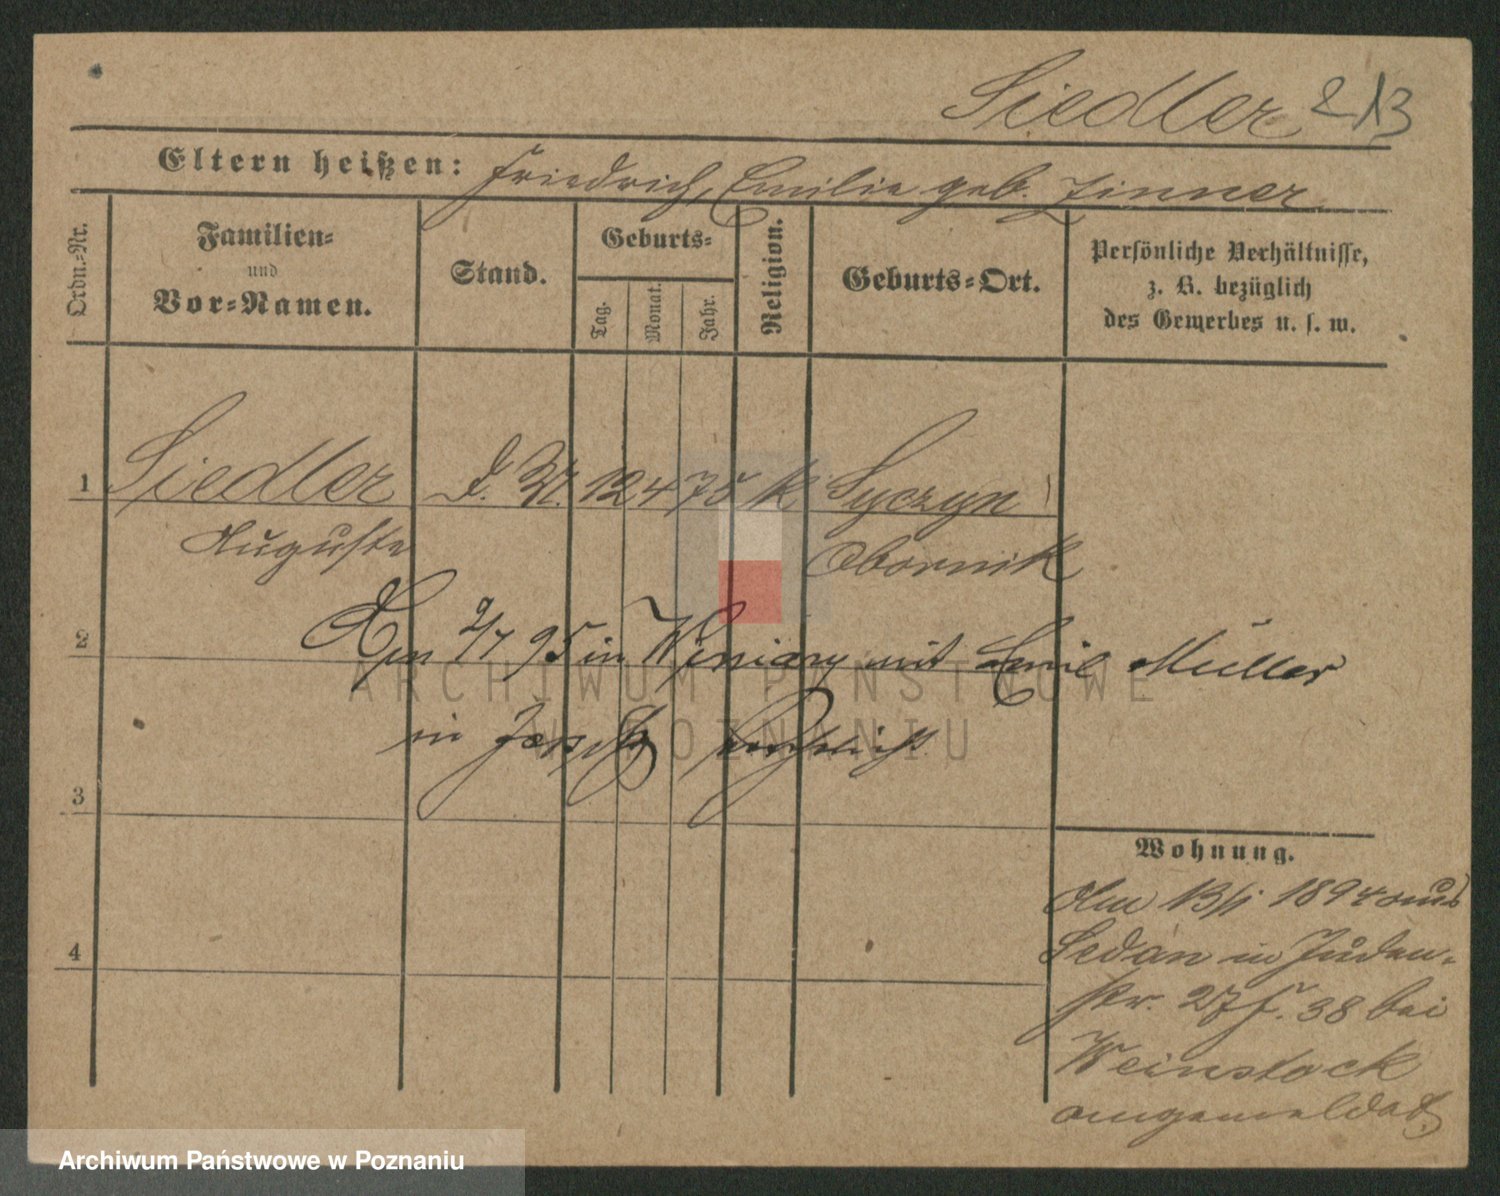 Siedler 213
Eltern heißen: Friedrich, Emilie geb. Zinner
Ordn.-Nr.
Familien-
und
Vor-Namen.
Stand.
Geburts-
Tag.
Monat.
Jahr.
Religion.
Geburts-Ort.
Persönliche Verhältnisse,
z. B. bezüglich
des Gewerbes u. s. w.
1 Siedler d. M. 12 4 75 k. Syczyn
Auguste Obornik
2 Am 2/7 95 in Winiary mit Emil Müller
in Jersitz verehelicht
3
4
Wohnung.
Am 13/1 1894 aus
Sedan in Juden-
str. 27 f. 38 bei
Weinstock
angemeldet
ARCHIWUM PAŃSTWOWE
W POZNANIU
Archiwum Państwowe w Poznaniu